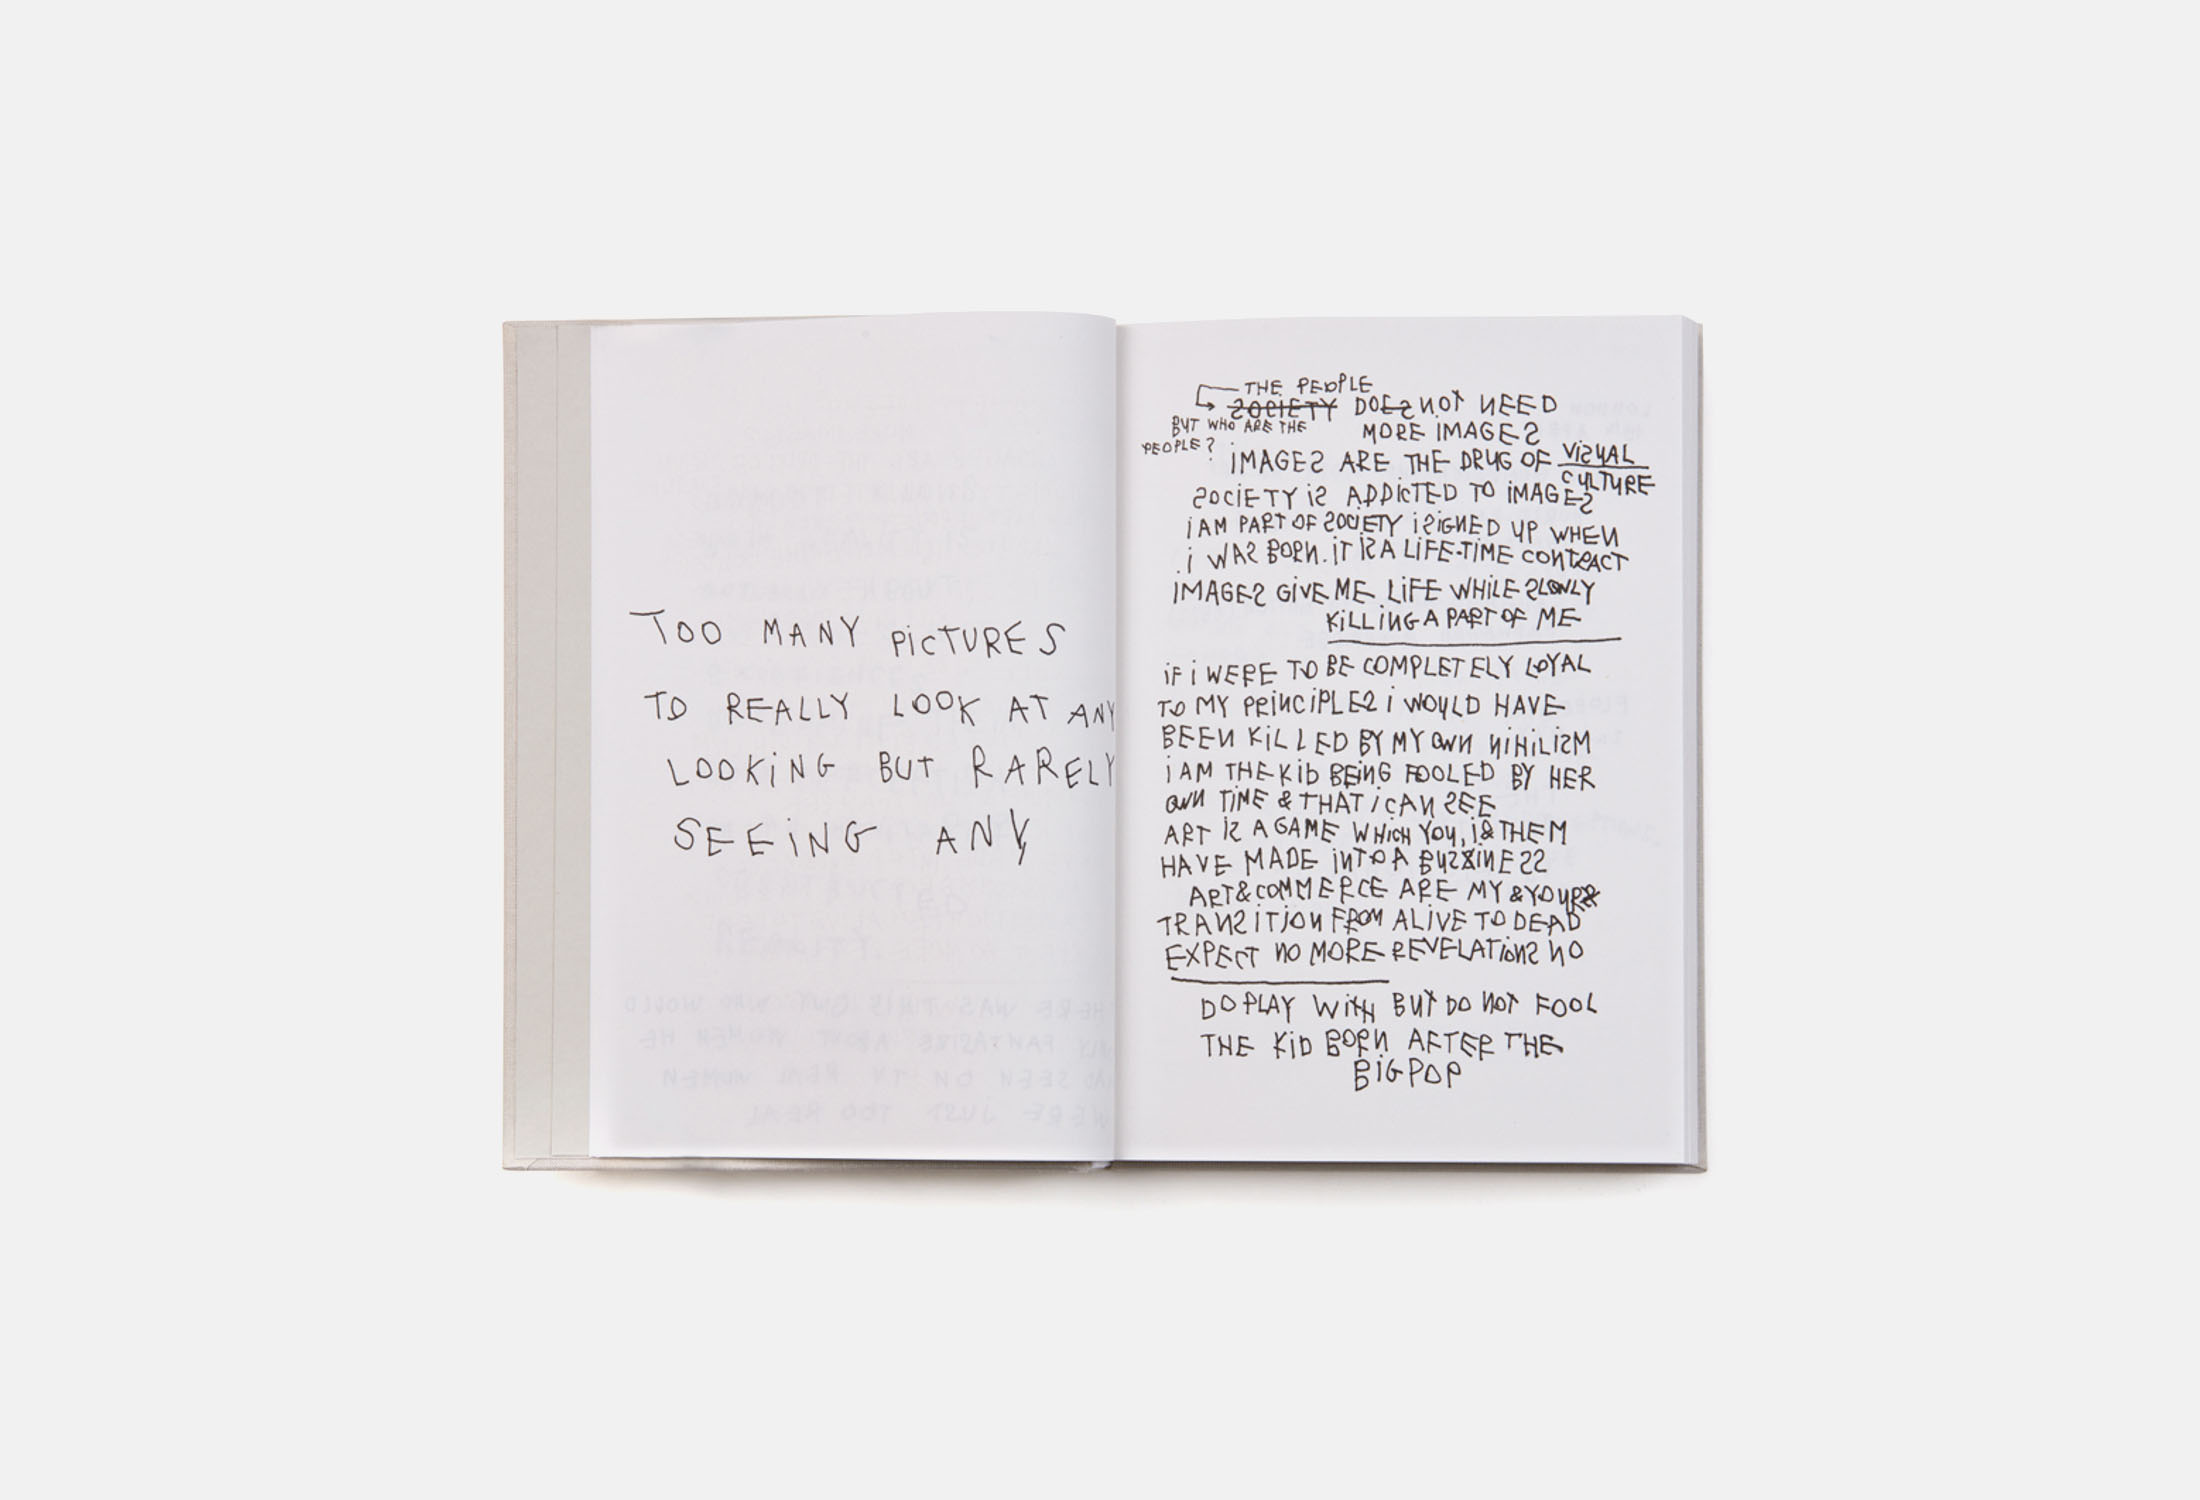 TOO MANY PICTURES
TO REALLY LOOK AT ANY
LOOKING BUT RARELY
SEEING ANY
THE PEOPLE
SOCIETY DOES NOT NEED
BUT WHO ARE THE
PEOPLE?
MORE IMAGES
IMAGES ARE THE DRUG OF VISUAL
CULTURE
SOCIETY IS ADDICTED TO IMAGES
I AM PART OF SOCIETY I SIGNED UP WHEN
I WAS BORN. IT IS A LIFE-TIME CONTRACT
IMAGES GIVE ME LIFE WHILE SLOWLY
KILLING A PART OF ME
IF I WERE TO BE COMPLETELY LOYAL
TO MY PRINCIPLES I WOULD HAVE
BEEN KILLED BY MY OWN NIHILISM
I AM THE KID BEING FOOLED BY HER
OWN TIME & THAT I CAN SEE
ART IS A GAME WHICH YOU, I & THEM
HAVE MADE INTO A BUSSINESS
ART & COMMERCE ARE MY & YOUR
TRANSITION FROM ALIVE TO DEAD
EXPECT NO MORE REVELATIONS NO
DO PLAY WITH BUT DO NOT FOOL
THE KID BORN AFTER THE
BIG POP
THERE WAS THIS GUY WHO WOULD
ONLY FANTASISE ABOUT WOMEN HE
HAD SEEN ON TV REAL WOMEN
WERE JUST TOO REAL